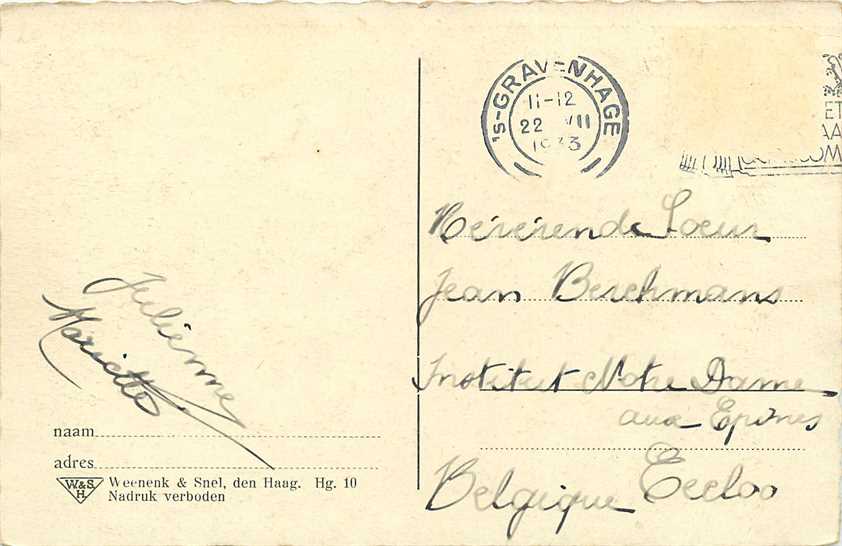 's-GRAVENHAGE
11-12
22 VII
1933
Révérende Soeur
Jean Berchmans
Institut Notre Dame
aux Epines
Belgique Eecloo
Julienne
Mariette
naam
adres
W&S
H.
Weenenk & Snel, den Haag. Hg. 10
Nadruk verboden